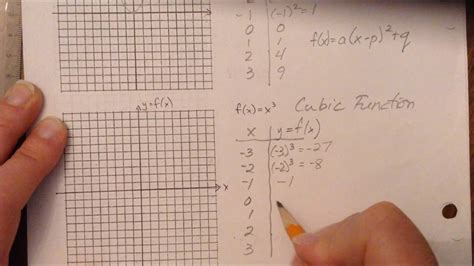 -1 (-1)² = 1
0 0
1 1
2 4
3 9
f(x) = a(x-p)² + q
y=f(x)
x
f(x) = x³ Cubic Function
x y = f(x)
-3 (-3)³ = -27
-2 (-2)³ = -8
-1 -1
0
1
2
3